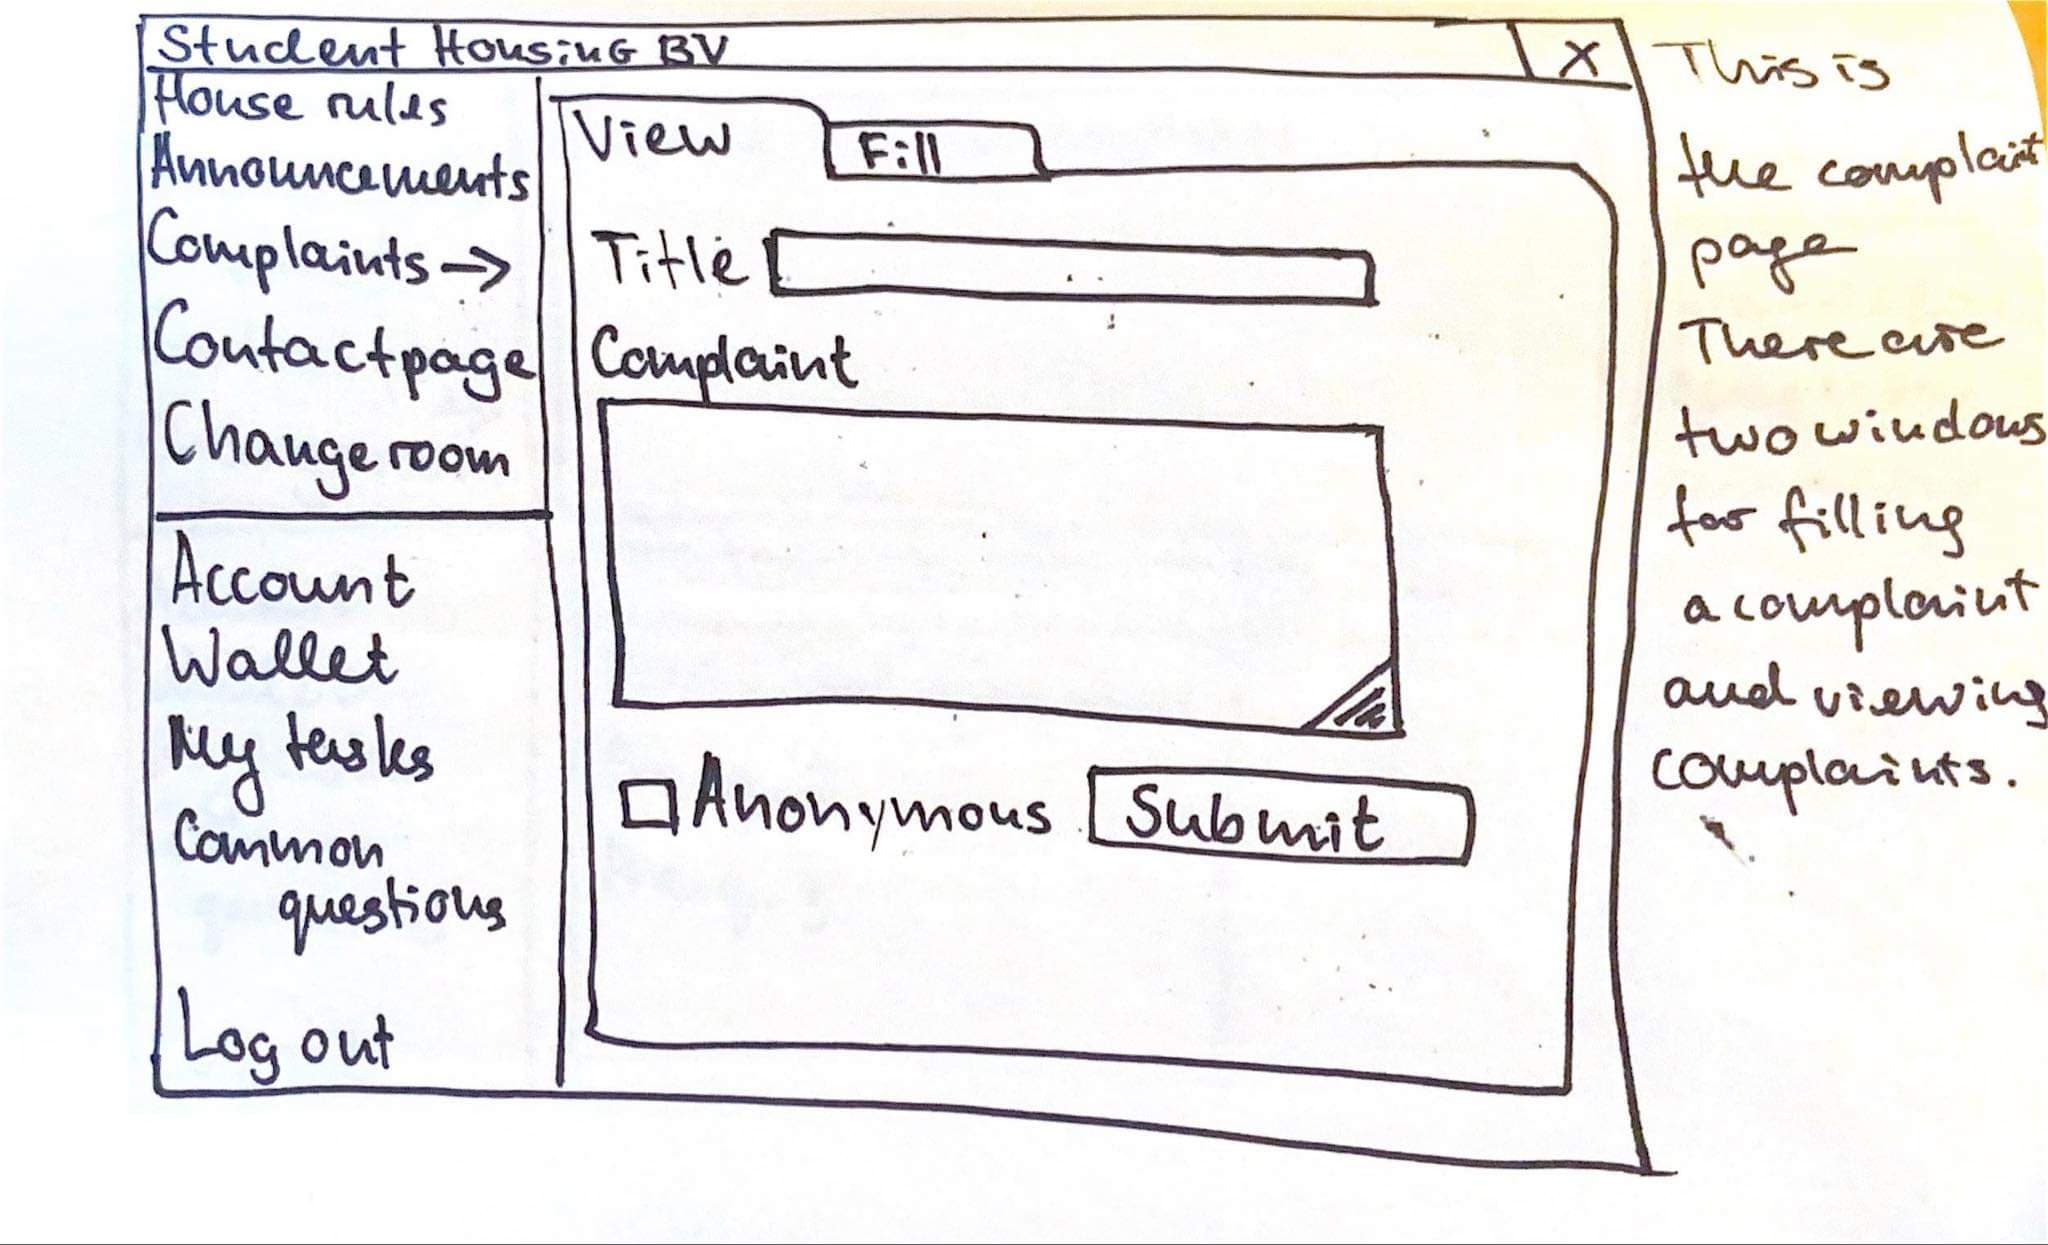 Student Housing BV
X
House rules
Announcements
Complaints →
Contact page
Change room
Account
Wallet
My tasks
Common
questions
Log out
View
Fill
Title
Complaint
Anonymous
Submit
This is
the complaint
page
There are
two windows
for filling
a complaint
and viewing
complaints.